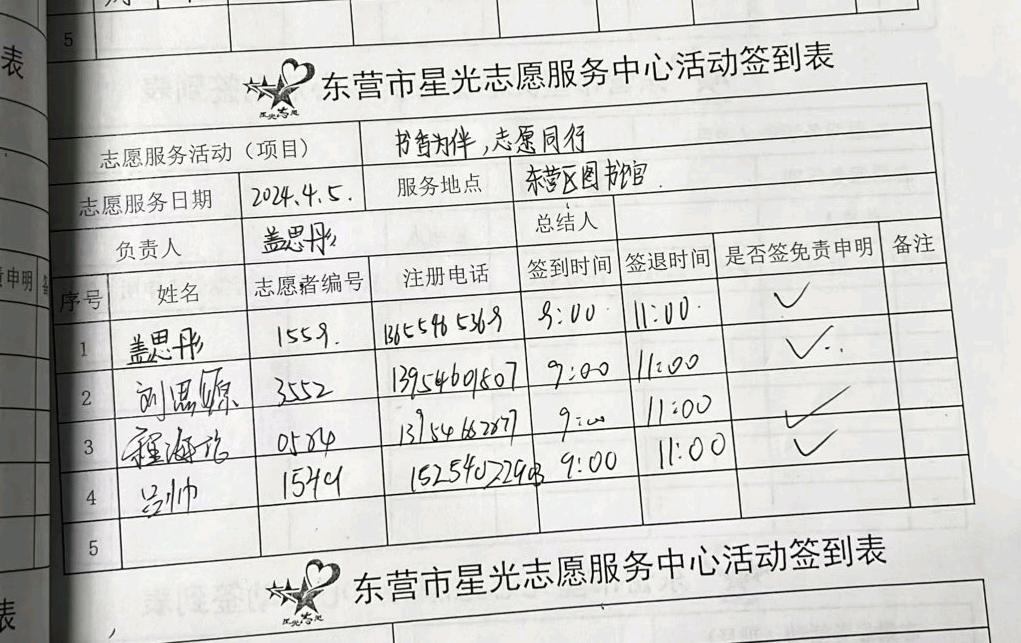 5
表
东营市星光志愿服务中心活动签到表
星光志愿
志愿服务活动（项目） 书香为伴，志愿同行
志愿服务日期 2024.4.5. 服务地点 东营区图书馆
负责人 盖思彤 总结人
责申明 备
序号 姓名 志愿者编号 注册电话 签到时间 签退时间 是否签免责申明 备注
1 盖思彤 1559. 13655465369 9:00 11:00 ✓
2 刘思源 3552 13954601807 9:00 11:00 ✓
3 程海 0584 9:00 11:00 ✓
4 吕帅 1549 15254022903 9:00 11:00 ✓
5
东营市星光志愿服务中心活动签到表
星光志愿
表